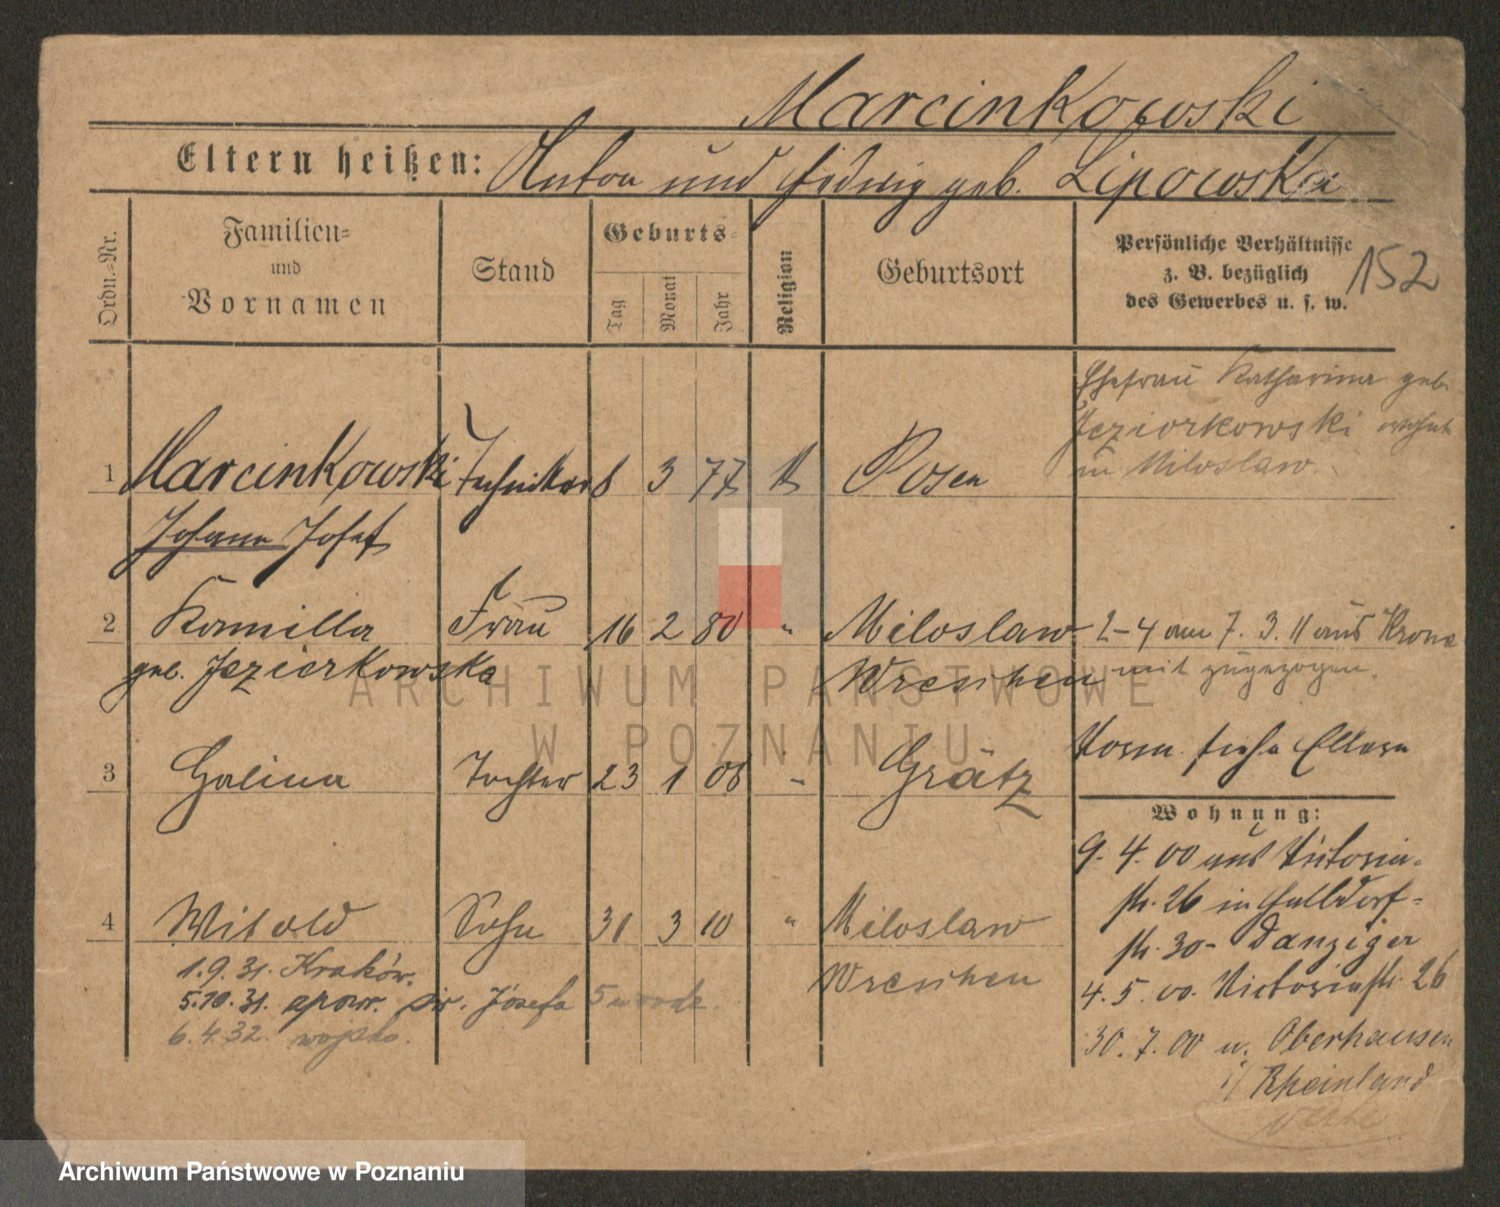 Marcinkowski
Eltern heißen: Anton und Hedwig geb. Lipowska
Ordn.-Nr.
Familien-
und
Vornamen
Stand
Geburts-
Tag
Monat
Jahr
Religion
Geburtsort
Persönliche Verhältnisse
z. B. bezüglich
des Gewerbes u. s. w.
152
Ehefrau Katharina geb.
Jeziorkowski wohnt
in Miloslaw.
1 Marcinkowski Techniker 8 3 77 K Posen
Johann Josef
2 Kamilla Frau 16 2 80 " Miloslaw 2-4 am 7. 3. 11 aus Krone
geb. Jeziorkowska Wreschen mit zugezogen.
3 Halina Tochter 23 1 08 " Grätz
Vorm. siehe Eltern
Wohnung:
9. 4. 00 aus Victoria-
str. 26 in Halldorf-
str. 30- Danziger
4. 5. 00. Victoriastr. 26
30. 7. 00 n. Oberhausen
i/ Rheinland
4 Witold Sohn 31 3 10 " Miloslaw
Wreschen
1.9.31. Kraków.
5.10.31. spow. Józefa
6.4.32. wojsko.
ARCHIWUM PAŃSTWOWE
W POZNANIU
Archiwum Państwowe w Poznaniu